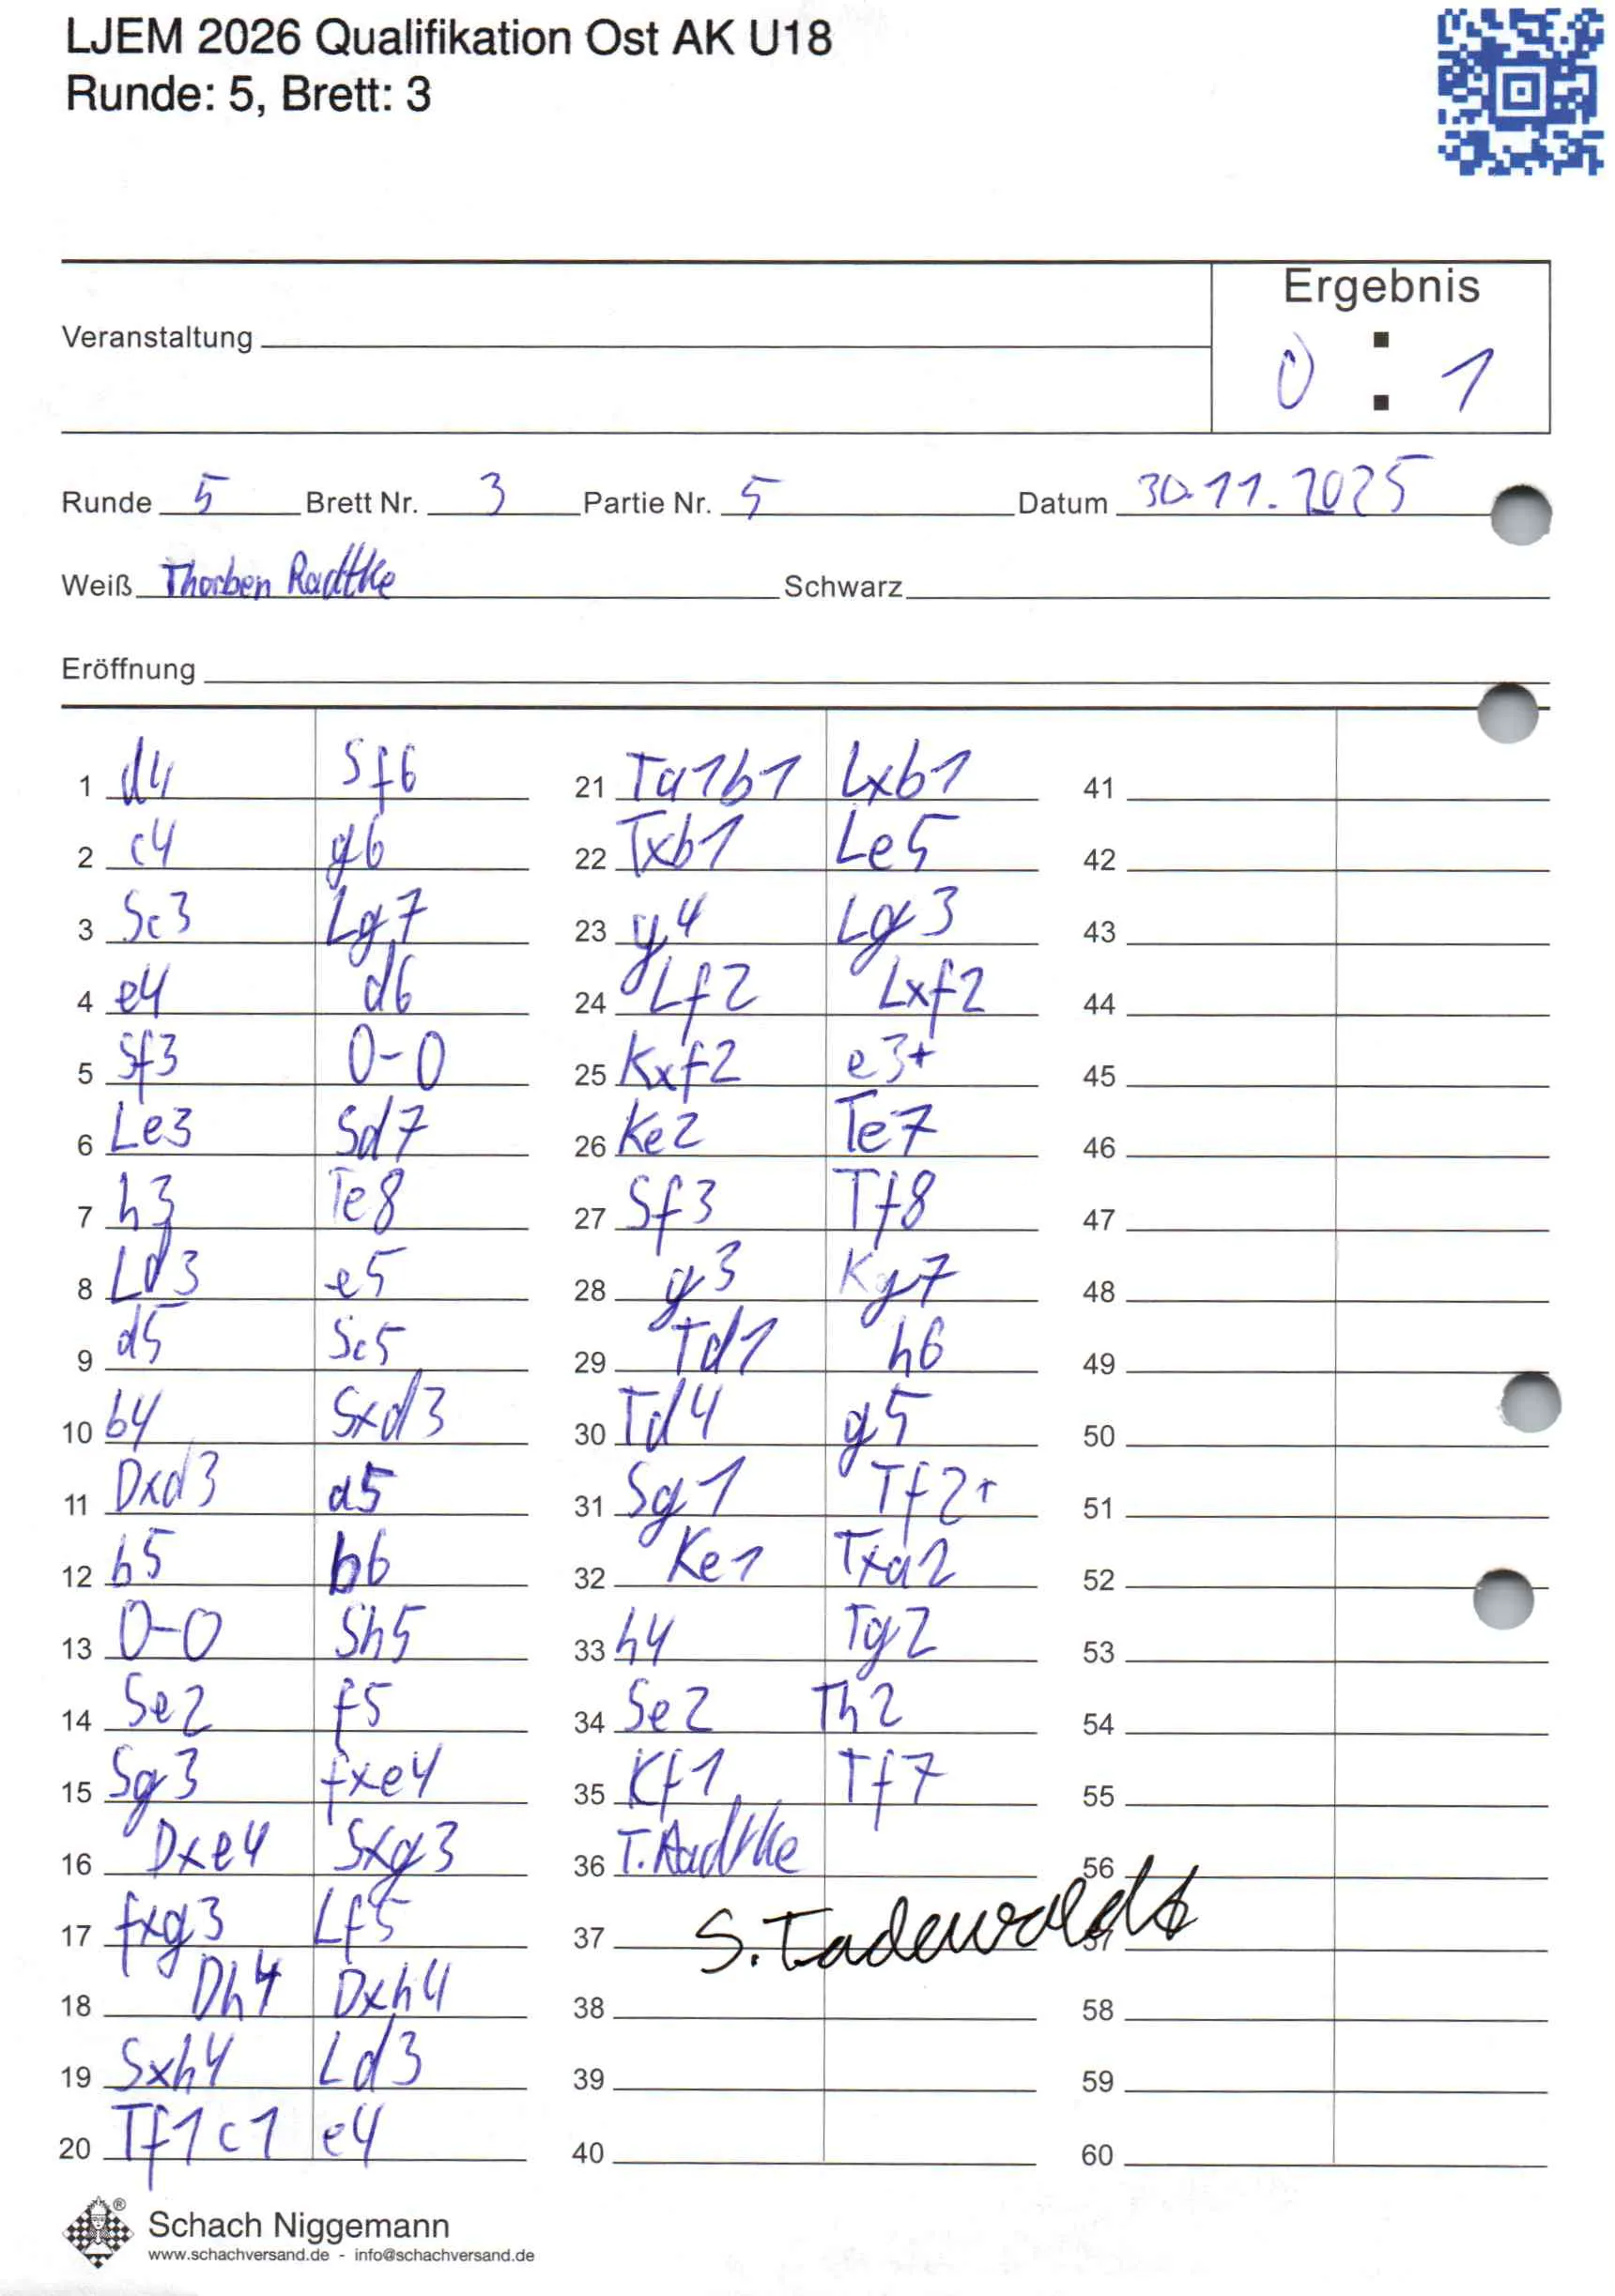 LJEM 2026 Qualifikation Ost AK U18
Runde: 5, Brett: 3
Ergebnis
Veranstaltung
0 : 1
Runde 5 Brett Nr. 3 Partie Nr. 5 Datum 30.11.2025
Weiß Thorben Radtke Schwarz
Eröffnung
1 d4 Sf6
2 c4 g6
3 Sc3 Lg7
4 e4 d6
5 Sf3 0-0
6 Le3 Sd7
7 h3 Te8
8 Ld3 e5
9 d5 Sc5
10 b4 Sxd3
11 Dxd3 a5
12 b5 b6
13 0-0 Sh5
14 Se2 f5
15 Sg3 fxe4
16 Dxe4 Sxg3
17 fxg3 Lf5
18 Dh4 Dxh4
19 Sxh4 Ld3
20 Tf1c1 e4
21 Ta1b1 Lxb1
22 Txb1 Le5
23 g4 Lg3
24 Lf2 Lxf2
25 Kxf2 e3+
26 Ke2 Te7
27 Sf3 Tf8
28 g3 Kg7
29 Td1 h6
30 Td4 g5
31 Sg1 Tf2+
32 Ke1 Txa2
33 h4 Tg2
34 Se2 Th2
35 Kf1 Tf7
36 T. Radtke
37 S. Tadewaldt
38
39
40
41
42
43
44
45
46
47
48
49
50
51
52
53
54
55
56
57
58
59
60
Schach Niggemann
www.schachversand.de - info@schachversand.de